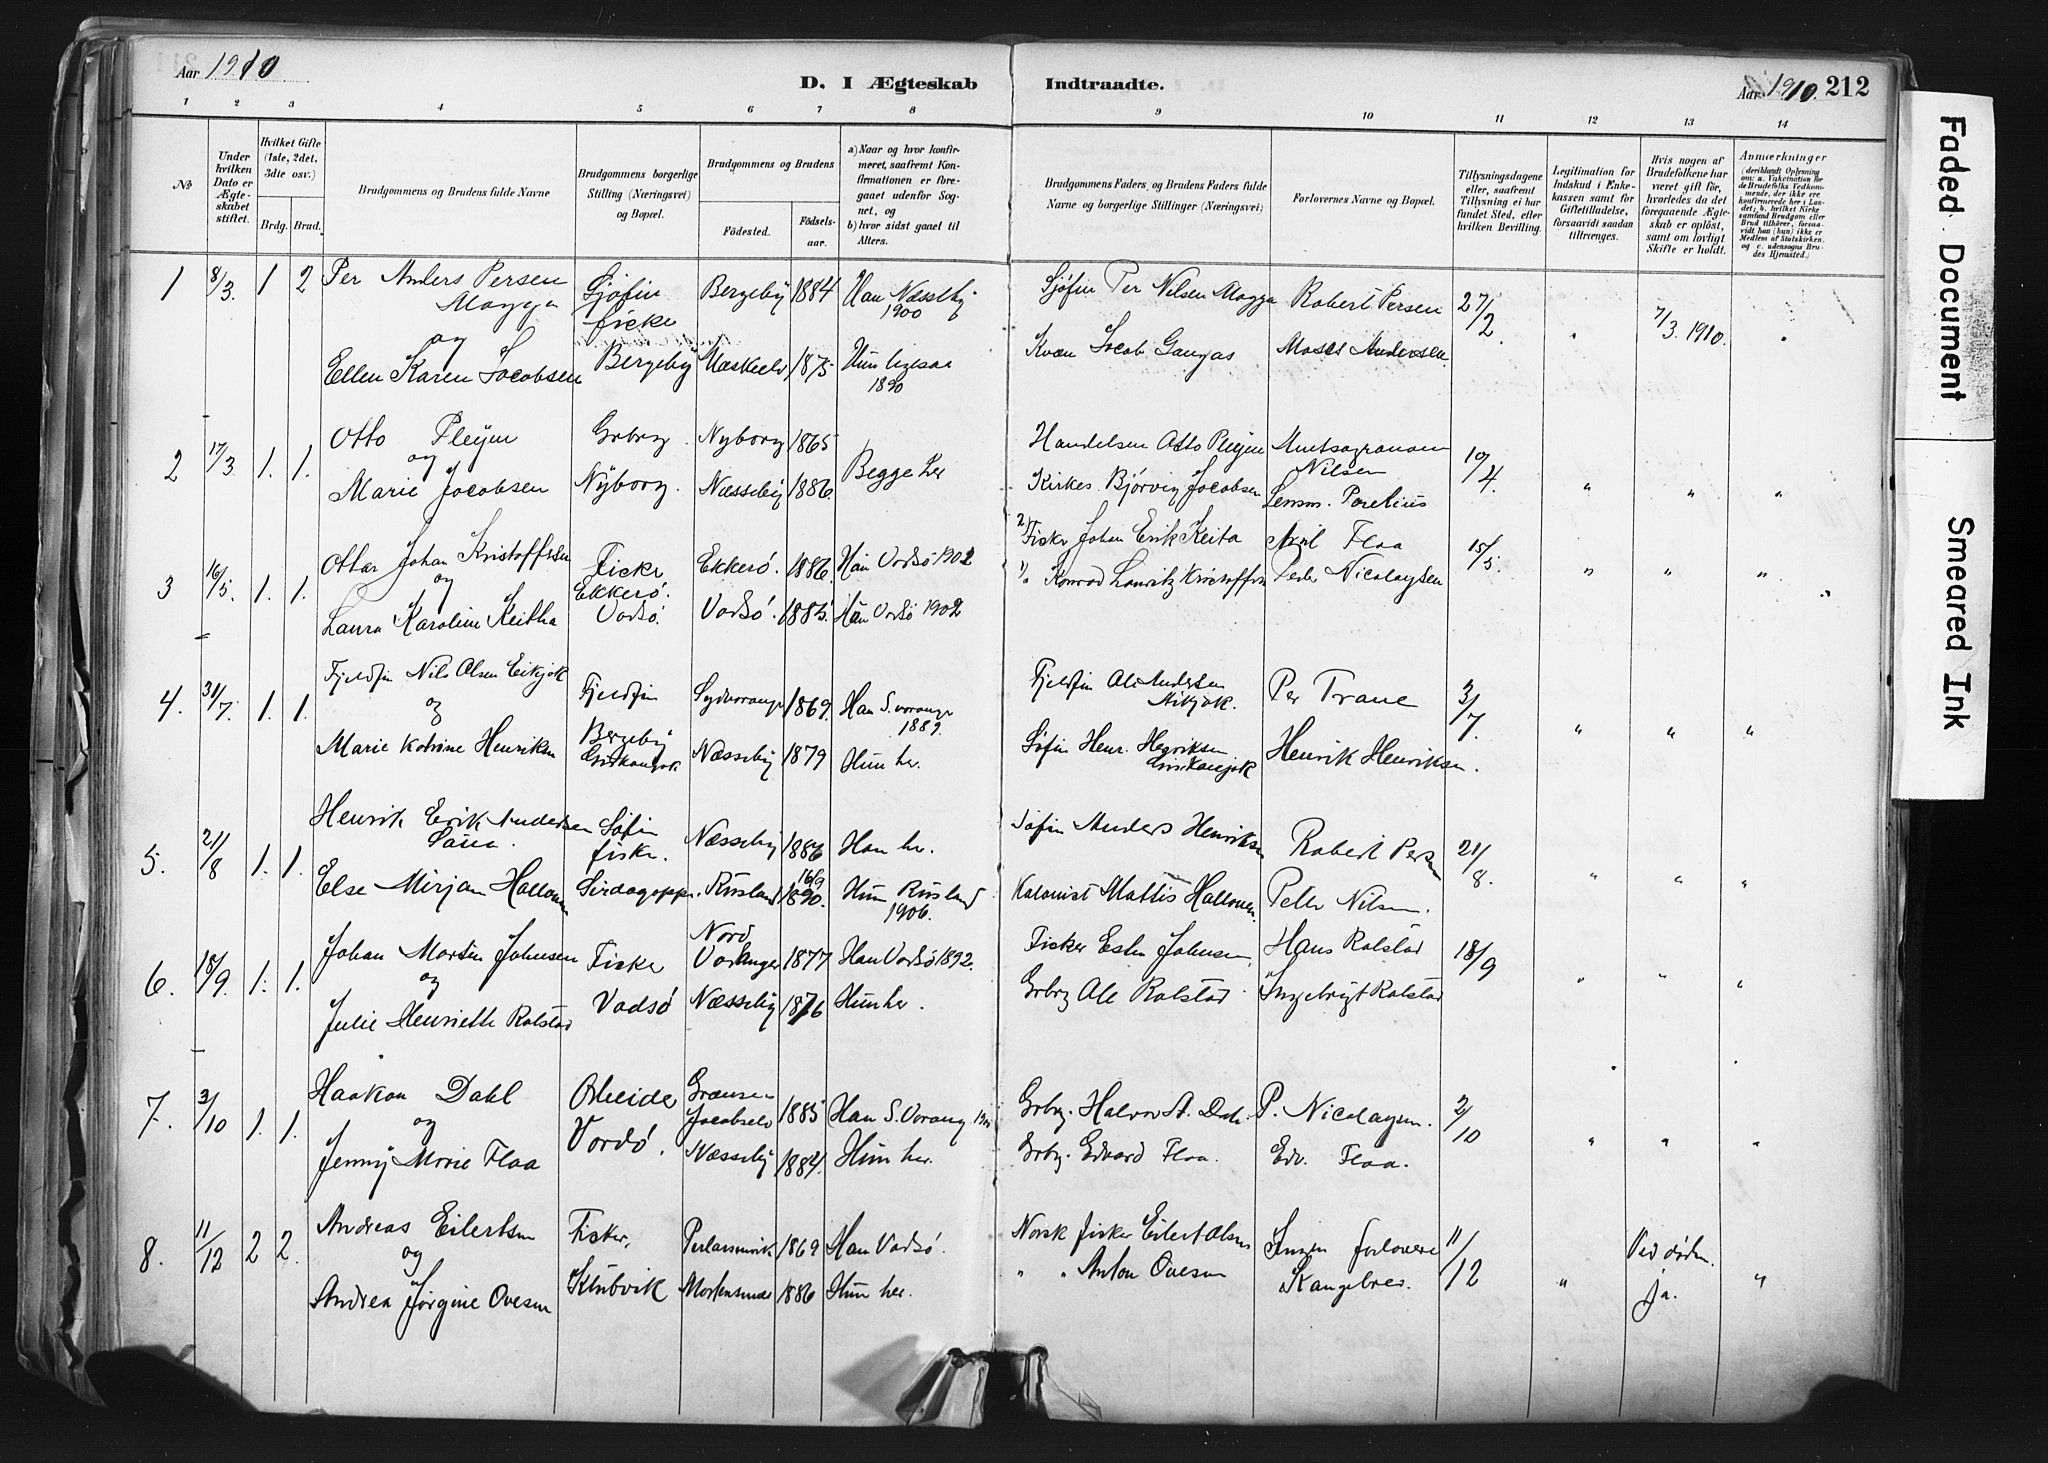 Aar 1910
D. I Ægteskab Indtraadte.
Aar 1910. 212
1 2 3 4 5 6 7 8 9 10 11 12 13 14
No
Under hvilken Dato er Ægteskabet stiftet.
Hvilket Gifte (1ste, 2det, 3die osv.)
Brdg. Brud.
Brudgommens og Brudens fulde Navne
Brudgommens borgerlige Stilling (Næringsvei) og Bopæl.
Brudgommens og Brudens
Fødested. Fødselsaar.
a) Naar og hvor konfirmeret, saafremt Konfirmationen er foregaaet udenfor Sognet, og
b) hvor sidst gaaet til Alters.
Brudgommens Faders og Brudens Faders fulde Navne og borgerlige Stillinger (Næringsvei)
Forlovernes Navne og Bopæl.
Tillysningsdagene eller, saafremt Tillysning ei har fundet Sted, efter hvilken Bevilling.
Legitimation for Indskud i Enkekassen samt for Giftetilladelse, forsaavidt saadan tiltrænges.
Hvis nogen af Brudefolkene har været gift før, hvorledes da det foregaaende Ægteskab er opløst, samt om lovligt Skifte er holdt.
Anmærkninger
(deriblandt Oplysning om: a. Vakcination for de Brudefolks Vedkommende, der ikke ere konfirmerede her i Landet; b. hvilket Kirkesamfund Brudgom eller Brud tilhører, forsaavidt han (hun) ikke er Medlem af Statskirken, og c. udensogns Brudes Hjemsted.)
1 8/3. 1 2 Per Anders Persen Sjøfin Bergeby 1884 Han Næsseby Sjøfin Per Nilsen Magga Robert Persen 27/2
Magga fisker 1900 7/3 1910.
og
Ellen Karen Jacobsen Bergeby 1875 Hun Kvæn Jacob Moses Andersen.
1890
2 17/3. 1. 1. Otto Pleÿm Grbrg. Nyborg 1865 Handelsm Otto Pleÿm 10/4.
og Begge her Nilsen
Marie Jacobsen Nÿborg. Næsseby 1886. Kirkes. Bjørvig Jacobsen Lensm.
3 16/5. 1. 1. Ottar Johan Kristoffersen Fisker Ekkerø. 1886. Han Vadsø 1902 2/ Fisker Johan Erik Keita Flaa 15/5.
og Ekkerø. 1/ Konrad Lauritz Kristoffersen Peder Nicolaysen
Laura Karoline Keitha Vadsø. Vadsø. 1885. Hun Vadsø 1902
4. 31/7. 1. 1. Fjeldfin Nils Olsen Fjeldfin Sydvaranger 1869. Han S. varanger Fjeldfin Ole Andersen Per Trane 3/7
og Bergeby 1889.
Marie Katrine Henriksen Næsseby 1879 Hun her. Søfin Henr. Henriksen Henrik Henriksen.
5. 21/8 1. 1. Henrik Erik Andersen Søfin Næsseby 1886 Han her. Søfin Anders Henriksen Robert Persen 21/8.
fisker. 16/9
Else Mirjam Hallonen Sirdagoppe. Rusland 1890. Hun Rusland Kolonist Mattis Hallonen. Nilsen.
1906.
6. 18/9. 1. 1. Johan Martin Johnsen Fisker Nord Varanger 1877 Han Vadsø 1892. Fisker Johnsen. Hans Rolstad 18/9
og
Julie Henriette Rolstad Vadsø Næsseby 1876 Hun her. Grbrg Ole Rolstad Ingebrigt Rolstad
7. 3/10 1. 1. Haakon Dahl Arbeider Grænsen Jacobselv 1885 Han S. Varang Grbrg. Halvor A. Dahl P. Nicolaysen. 2/10
og
Jenny Marie Flaa Vardø. Næsseby 1884. Hun her. Grbrg. Edvard Flaa. Edv. Flaa.
8. 11/12 2 2. Andreas Eilertsen Fisker, 1869 Han Vadsø. Norsk fisker Eilert Olsen Ingen forlovere 11/12 Ved døden.
og
Andrea Jørgine Ovesen Klubvik Mortensnæs 1886 Hun her. " " Anton Ovesen ja.
Faded Document
Smeared Ink